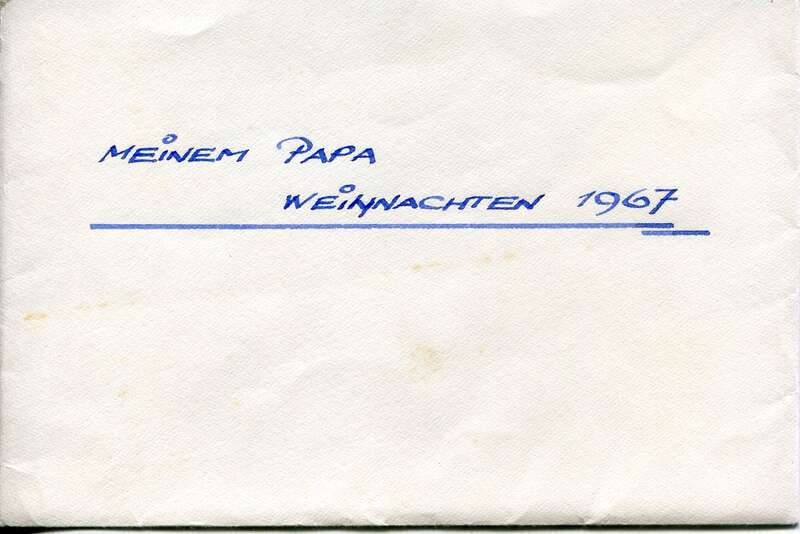 MEINEM PAPA
WEIHNACHTEN 1967